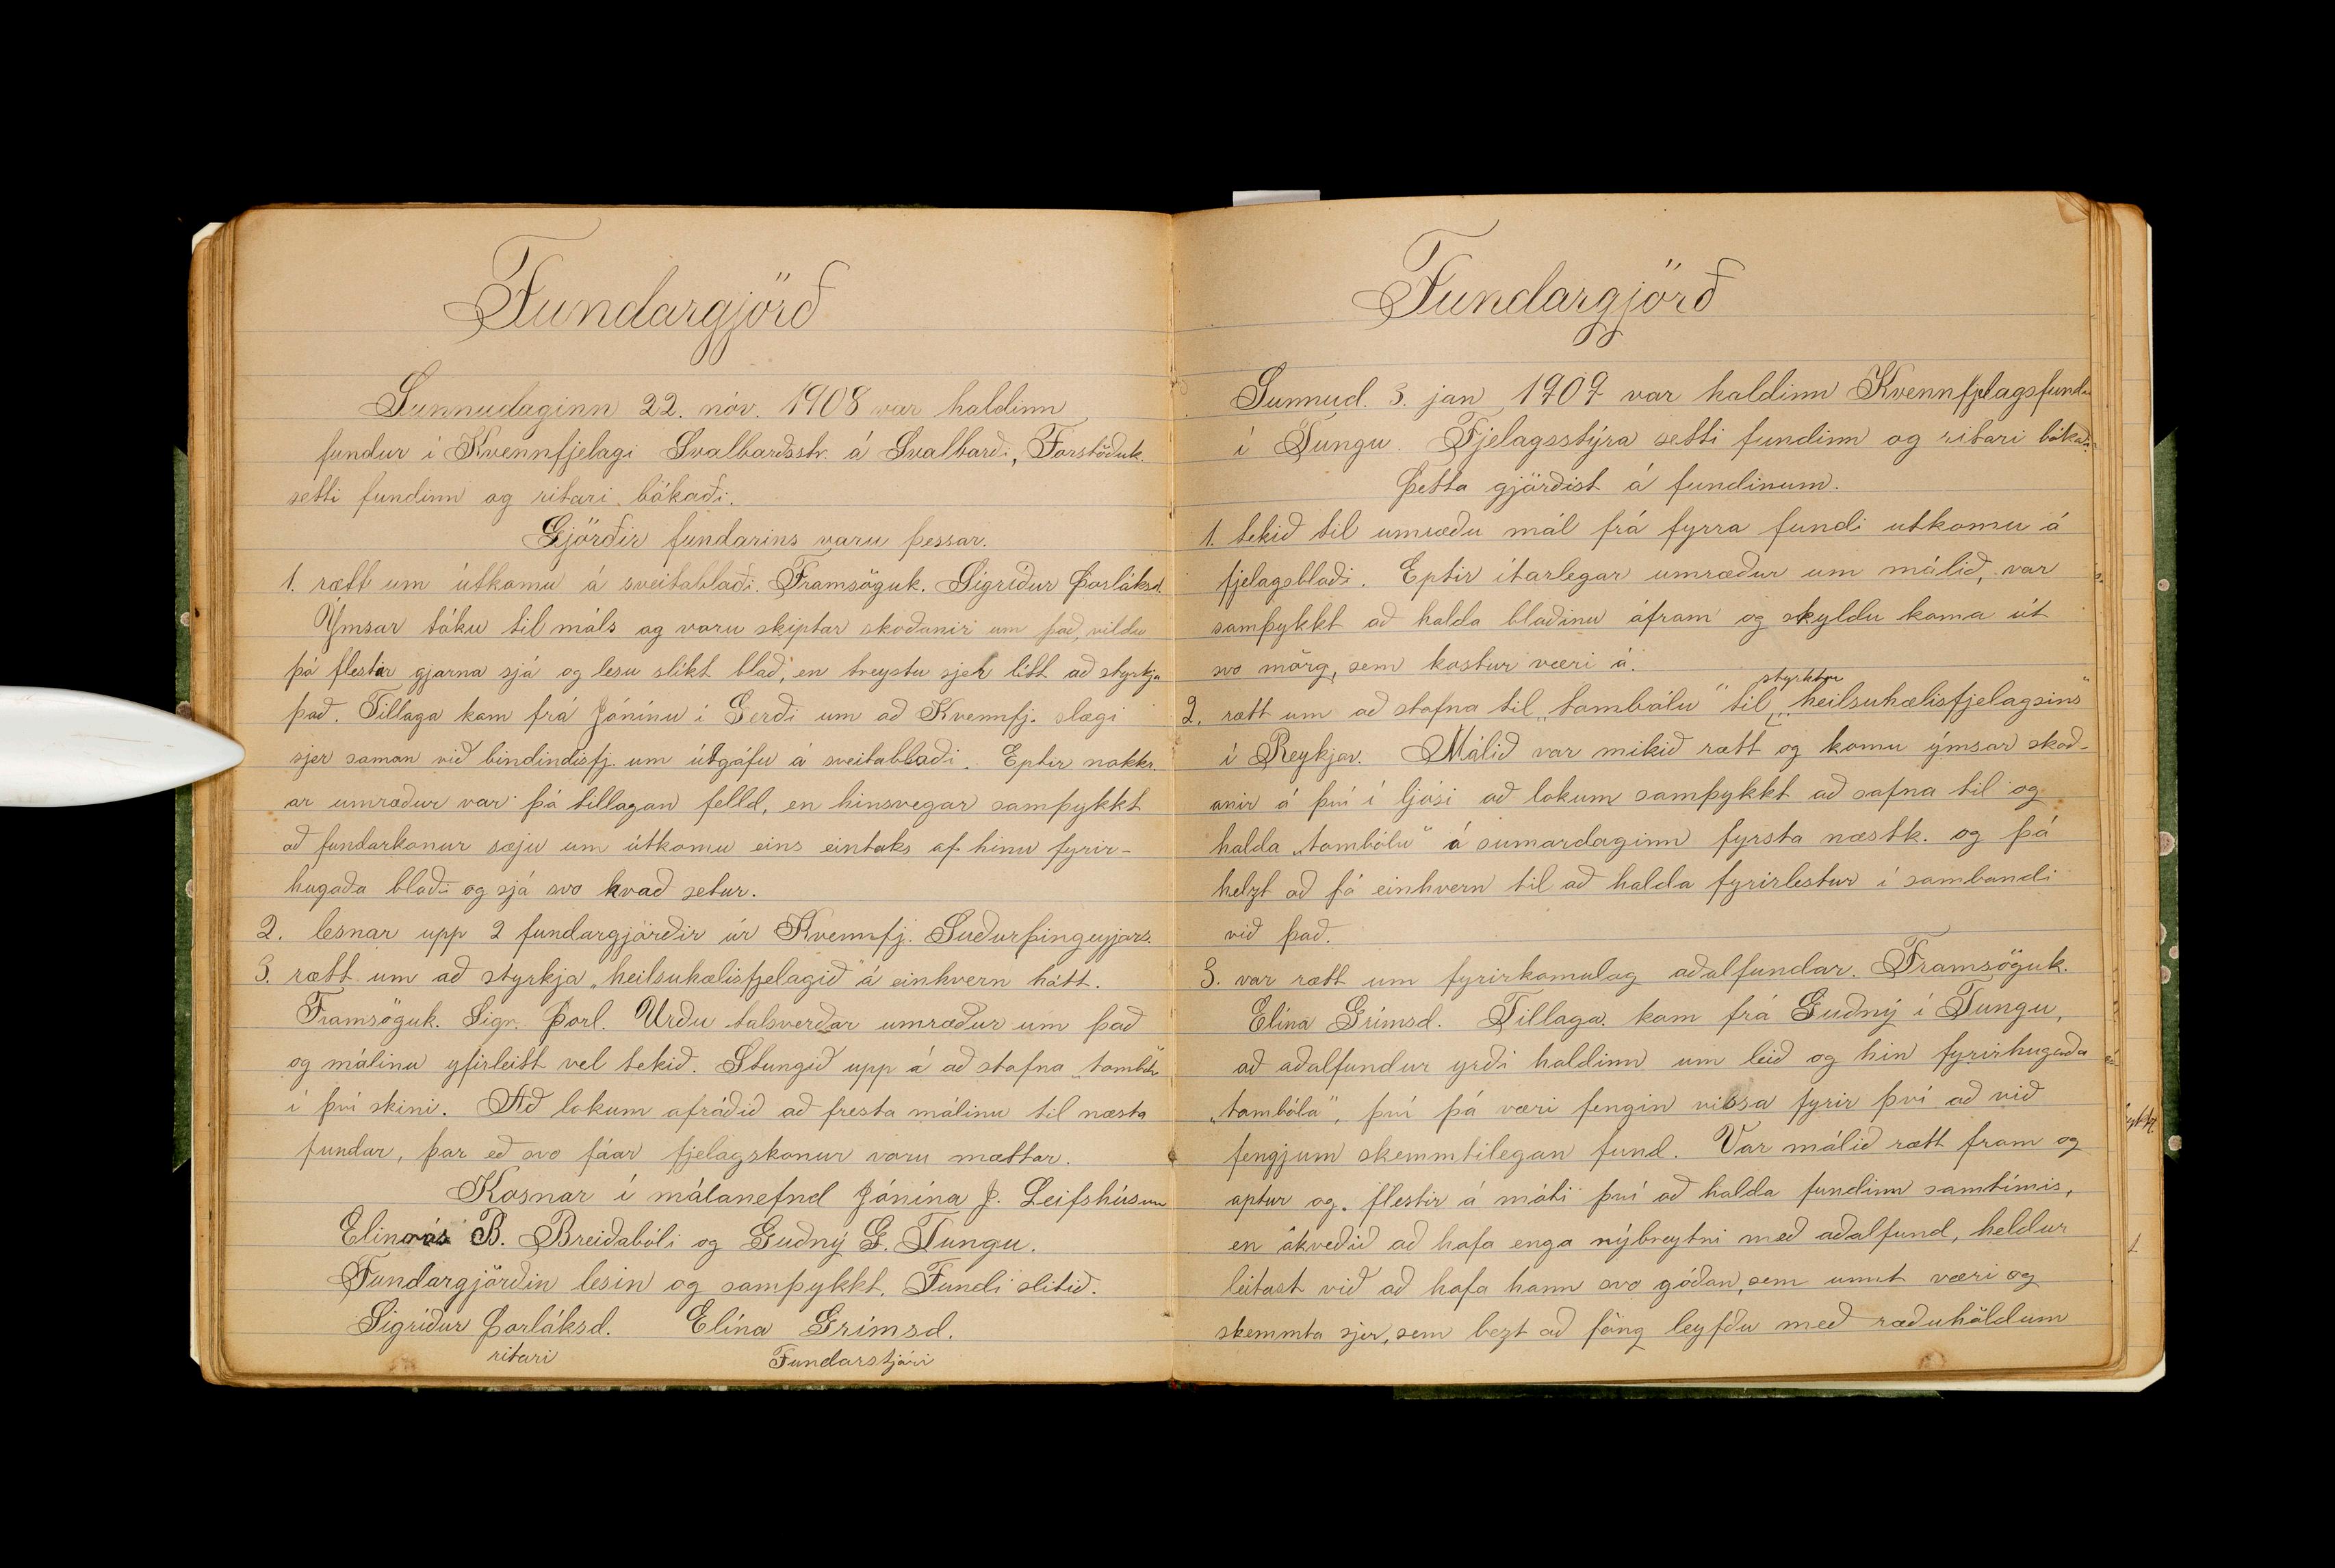 Fundargjörð
Sunnudaginn 22. nóv. 1908 var haldinn
fundur í Kvennfjelagi Svalbarðsstr. á Svalbarði, Forstöðuk.
setti fundinn og ritari bókaði.
Gjörðir fundarins voru þessar.
1. rætt um útkomu á sveitablaði. Framsöguk. Sigríður Þorláksd.
Ýmsar tóku til máls og voru skiptar skoðanir um það, vildu
þó flestar gjarna sjá og lesa slíkt blað, en treystu sjer lítt að styrkja
það. Tillaga kom frá Jónínu í Gerði um að Kvennfj. slægi
sjer saman við bindindisfj. um útgáfu á sveitablaði. Eptir nokkr.
ar umræður var þá tillagan felld, en hinsvegar samþykkt
að fundarkonur sæju um útkomu eins eintaks af hinu fyrir-
hugaða blaði og sjá svo hvað setur.
2. lesnar upp 2 fundargjörðir úr Kvennfj. Suðurþingeyjars.
3. rætt um að styrkja „heilsuhælisfjelagið" á einhvern hátt.
Framsöguk. Sigr. Þorl. Urðu talsverðar umræður um það
og málinu yfirleitt vel tekið. Stungið upp á að stofna „tomból"
í því skini. Að lokum afráðið að fresta málinu til næsta
fundar, þar eð svo fáar fjelagskonur voru mættar.
Kosnar í málanefnd Jónína J. Leifshúsum
Elinrós B. Breiðabóli og Guðný G. Tungu.
Fundargjörðin lesin og samþykkt. Fundi slitið.
Sigríður Þorláksd. Elína Grímsd.
ritari Fundarstjóri
Fundargjörð
Sunnud. 3. jan 1909 var haldinn Kvennfjelagsfundur
í Tungu. Fjelagsstýra setti fundinn og ritari bókaði.
Þetta gjörðist á fundinum.
1. tekið til umræðu mál frá fyrra fundi utkomu á
fjelagsblaði. Eptir ítarlegar umræður um málið, var
samþykkt að halda blaðinu áfram og skyldu koma út
svo mörg, sem kostur væri á.
styrktar
2. rætt um að stofna til „tombólu" til „heilsuhælisfjelagsins"
í Reykjav. Málið var mikið rætt og komu ýmsar skoð-
anir á því í ljósi að lokum samþykkt að safna til og
halda „tombólu" á sumardaginn fyrsta næstk. og þá
helzt að fá einhvern til að halda fyrirlestur í sambandi
við það.
3. var rætt um fyrirkomulag aðalfundar. Framsöguk.
Elína Grímsd. Tillaga kom frá Guðný í Tungu,
að aðalfundur yrði haldinn um leið og hin fyrirhugaða
„tombóla", því þá væri fengin vissa fyrir því að við
fengjum skemmtilegan fund. Var málið rætt fram og
aptur og flestir á móti því að halda fundinn samtímis,
en ákveðið að hafa enga nýbreytni með aðalfund, heldur
leitast við að hafa hann svo góðan, sem unnt væri og
skemmta sjer, sem bezt að föng leyfðu með ræðuhöldum